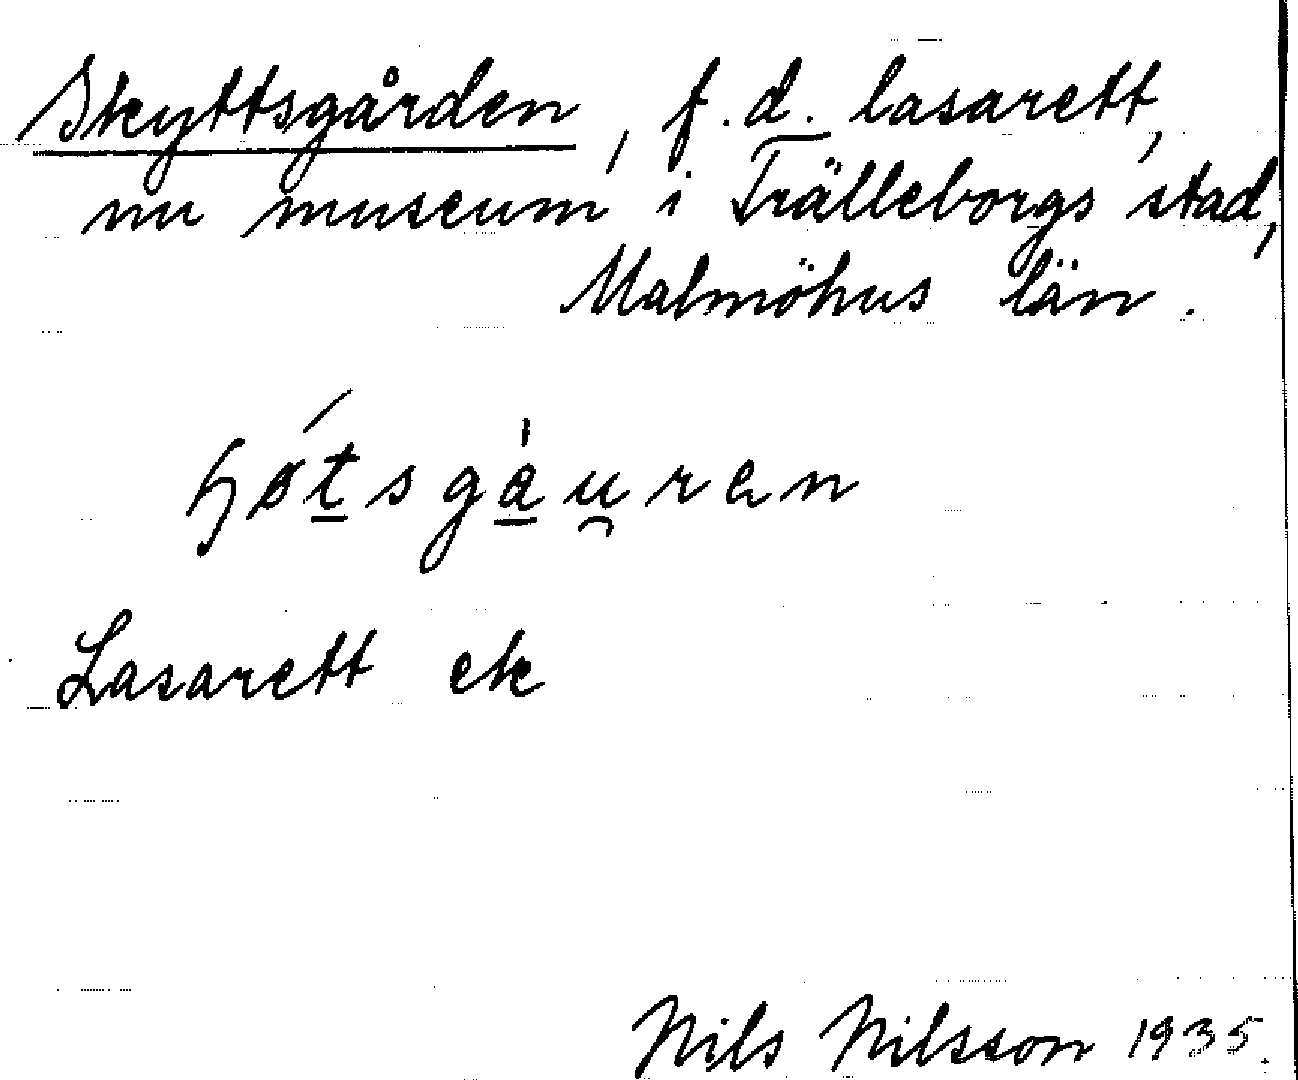 Skyttsgården, f.d. lasarett,
nu museum i Trälleborgs stad,
Malmöhus län.
ꜧøtsgau̯ren
Lasarett ek
Nils Nilsson 1935.